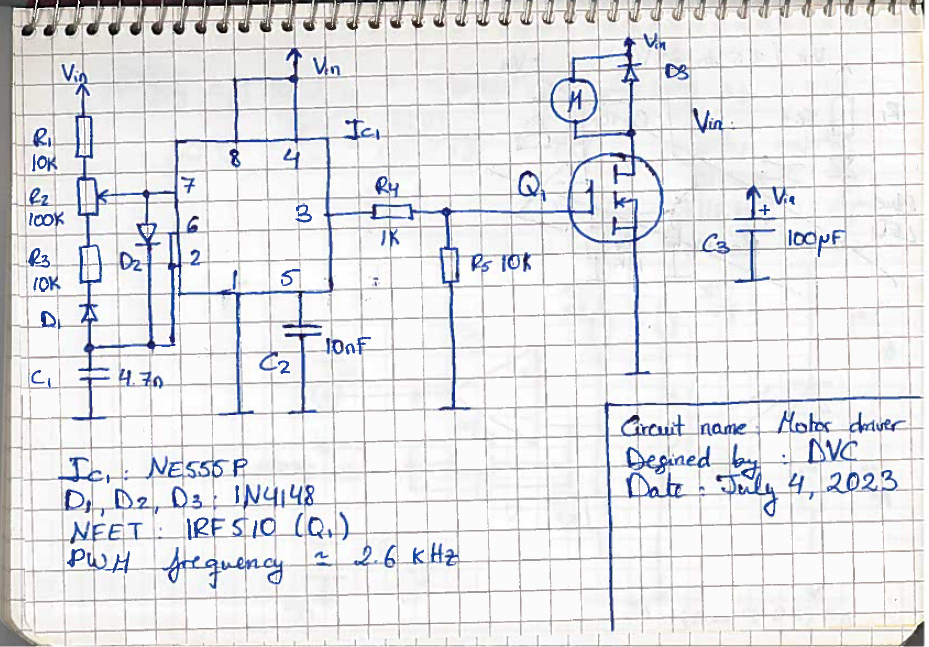 Vin
R1
10K
R2
100K
R3
10K
D1
C1
4.7n
D2
Vin
Ic1
8 4
7
6
2
3
1 5
C2
10nF
R4
1K
R5 10K
Q1
M
Vin
D3
Vin:
Vin
+
C3
100µF
Ic1: NE555P
D1, D2, D3: 1N4148
NFET: IRF510 (Q1)
PWM frequency ≃ 2.6 KHz
Circuit name: Motor driver
Desined by: DVC
Date: July 4, 2023